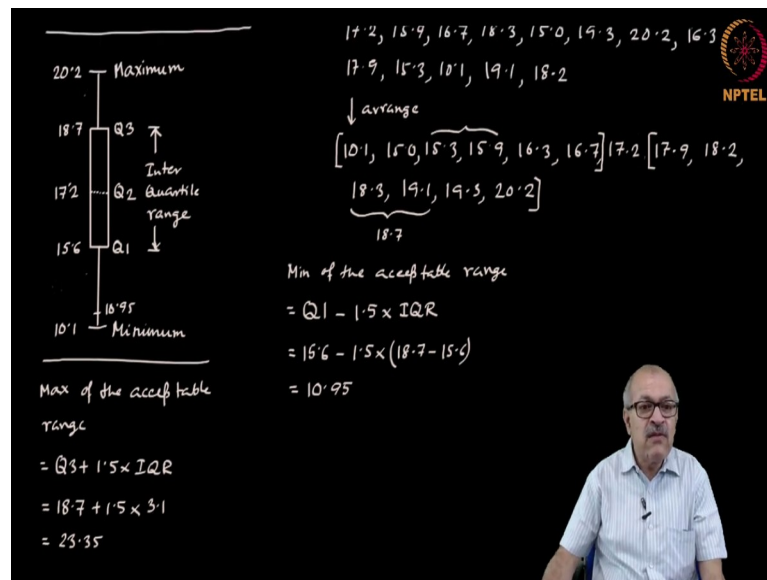 20.2 Maximum
18.7 Q3
Inter
17.2 Q2 Quartile
range
15.6 Q1
10.95
10.1 Minimum
Max of the acceptable
range
= Q3 + 1.5 x IQR
= 18.7 + 1.5 x 3.1
= 23.35
17.2, 15.9, 16.7, 18.3, 15.0, 19.3, 20.2, 16.3
17.9, 15.3, 10.1, 19.1, 18.2
↓ arrange
[10.1, 15.0, 15.3, 15.9, 16.3, 16.7] 17.2 [17.9, 18.2,
18.3, 19.1, 19.3, 20.2]
18.7
Min of the acceptable range
= Q1 - 1.5 x IQR
= 15.6 - 1.5 x (18.7 - 15.6)
= 10.95
NPTEL